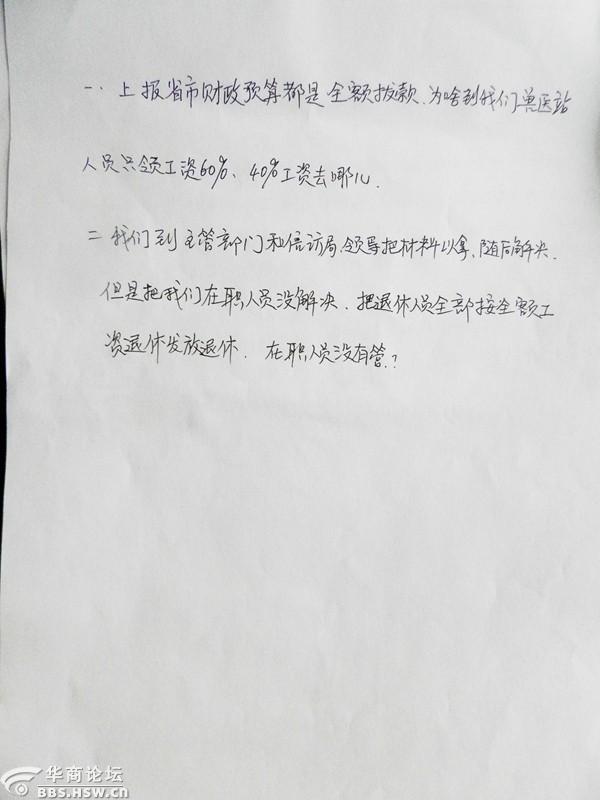 一、上报省市财政预算都是全额拨款、为啥到我们兽医站
人员只领工资60%、40%工资去哪儿.
二 我们到主管部门和信访局、领导把材料以拿、随后解决.
但是把我们在职人员没解决、把退休人员全部按全额工
资退休发放退休. 在职人员没有管.?
华商论坛
BBS.HSW.CN